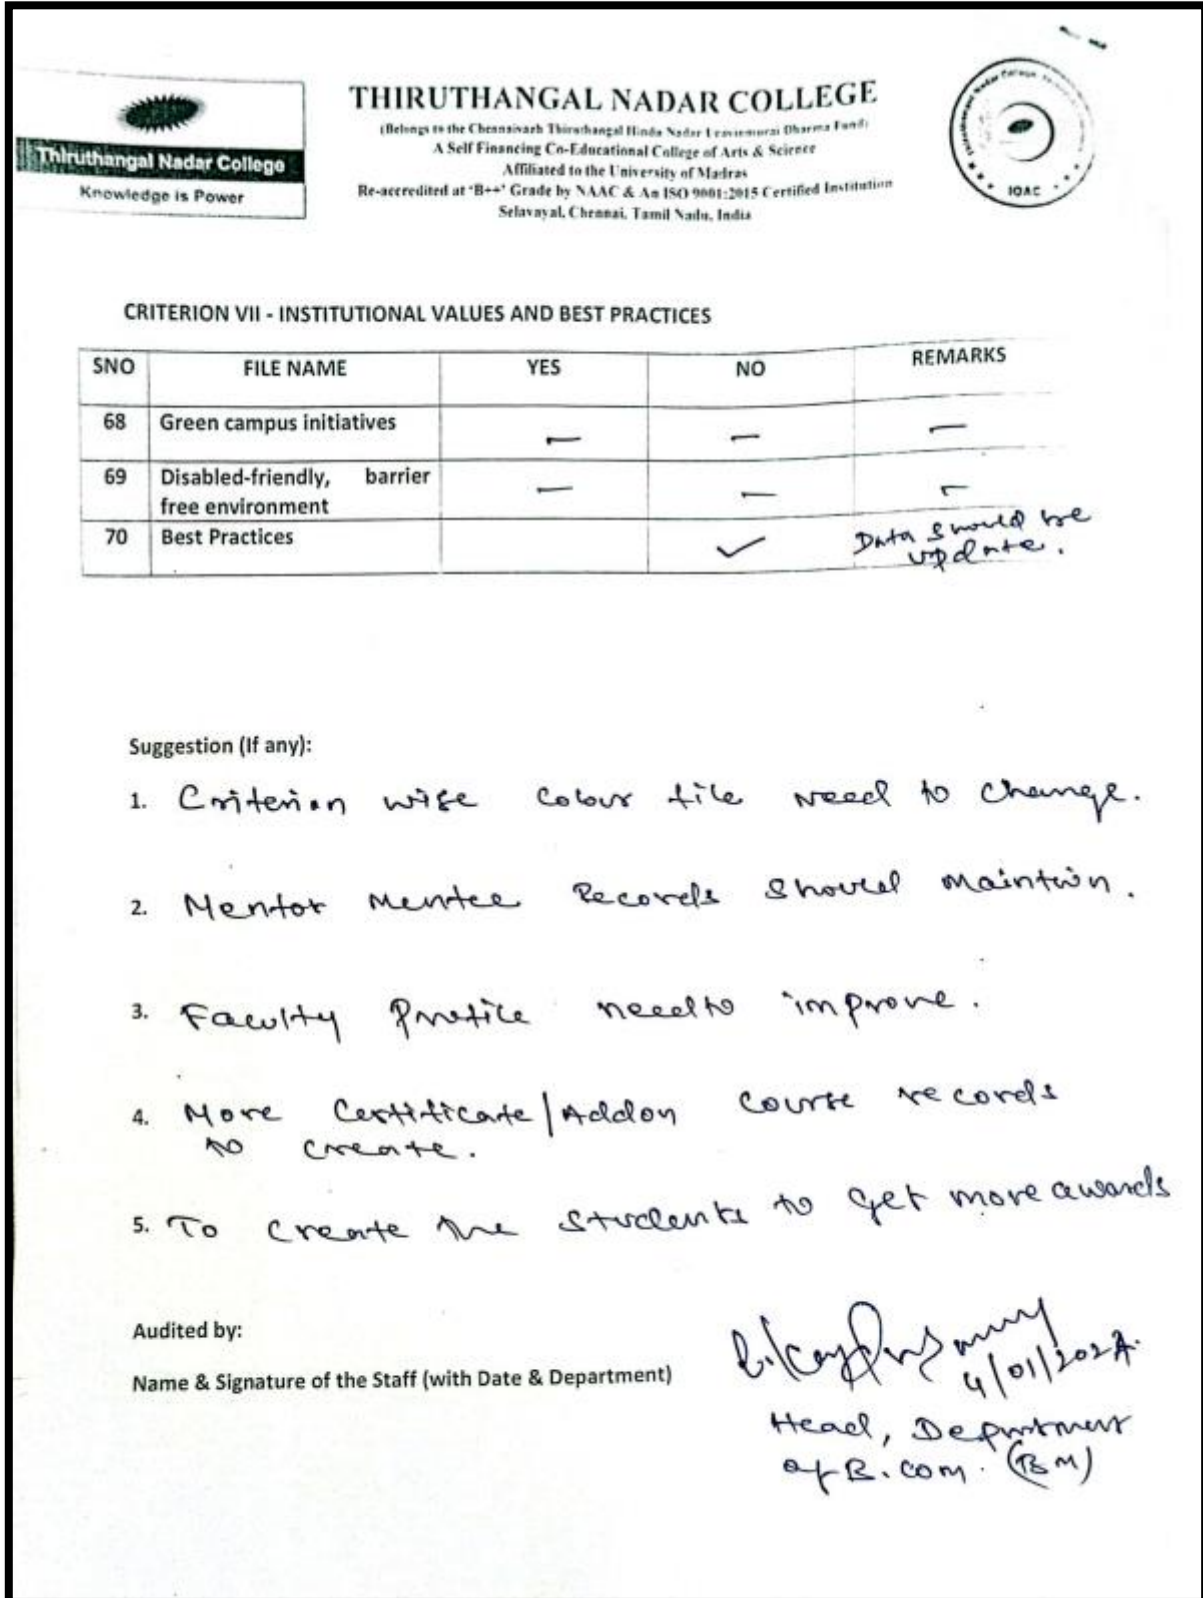 Thiruthangal Nadar College
Knowledge is Power
THIRUTHANGAL NADAR COLLEGE
(Belongs to the Chennaivazh Thiruthangal Hindu Nadar Uravinmurai Dharma Fund)
A Self Financing Co-Educational College of Arts & Science
Affiliated to the University of Madras
Re-accredited at 'B++' Grade by NAAC & An ISO 9001:2015 Certified Institution
Selavayal, Chennai, Tamil Nadu, India
IQAC
CRITERION VII - INSTITUTIONAL VALUES AND BEST PRACTICES
SNO FILE NAME YES NO REMARKS
68 Green campus initiatives — — —
69 Disabled-friendly, barrier — — —
free environment
70 Best Practices ✓ Data should be
update.
Suggestion (If any):
1. Criterion wise colour file need to change.
2. Mentor Mentee Records should maintain.
3. Faculty Profile need to improve.
4. More Certificate/Addon course records
to create.
5. To create the students to get more awards
Audited by:
Name & Signature of the Staff (with Date & Department)
4/01/2024.
Head, Department
of B.com. (BM)